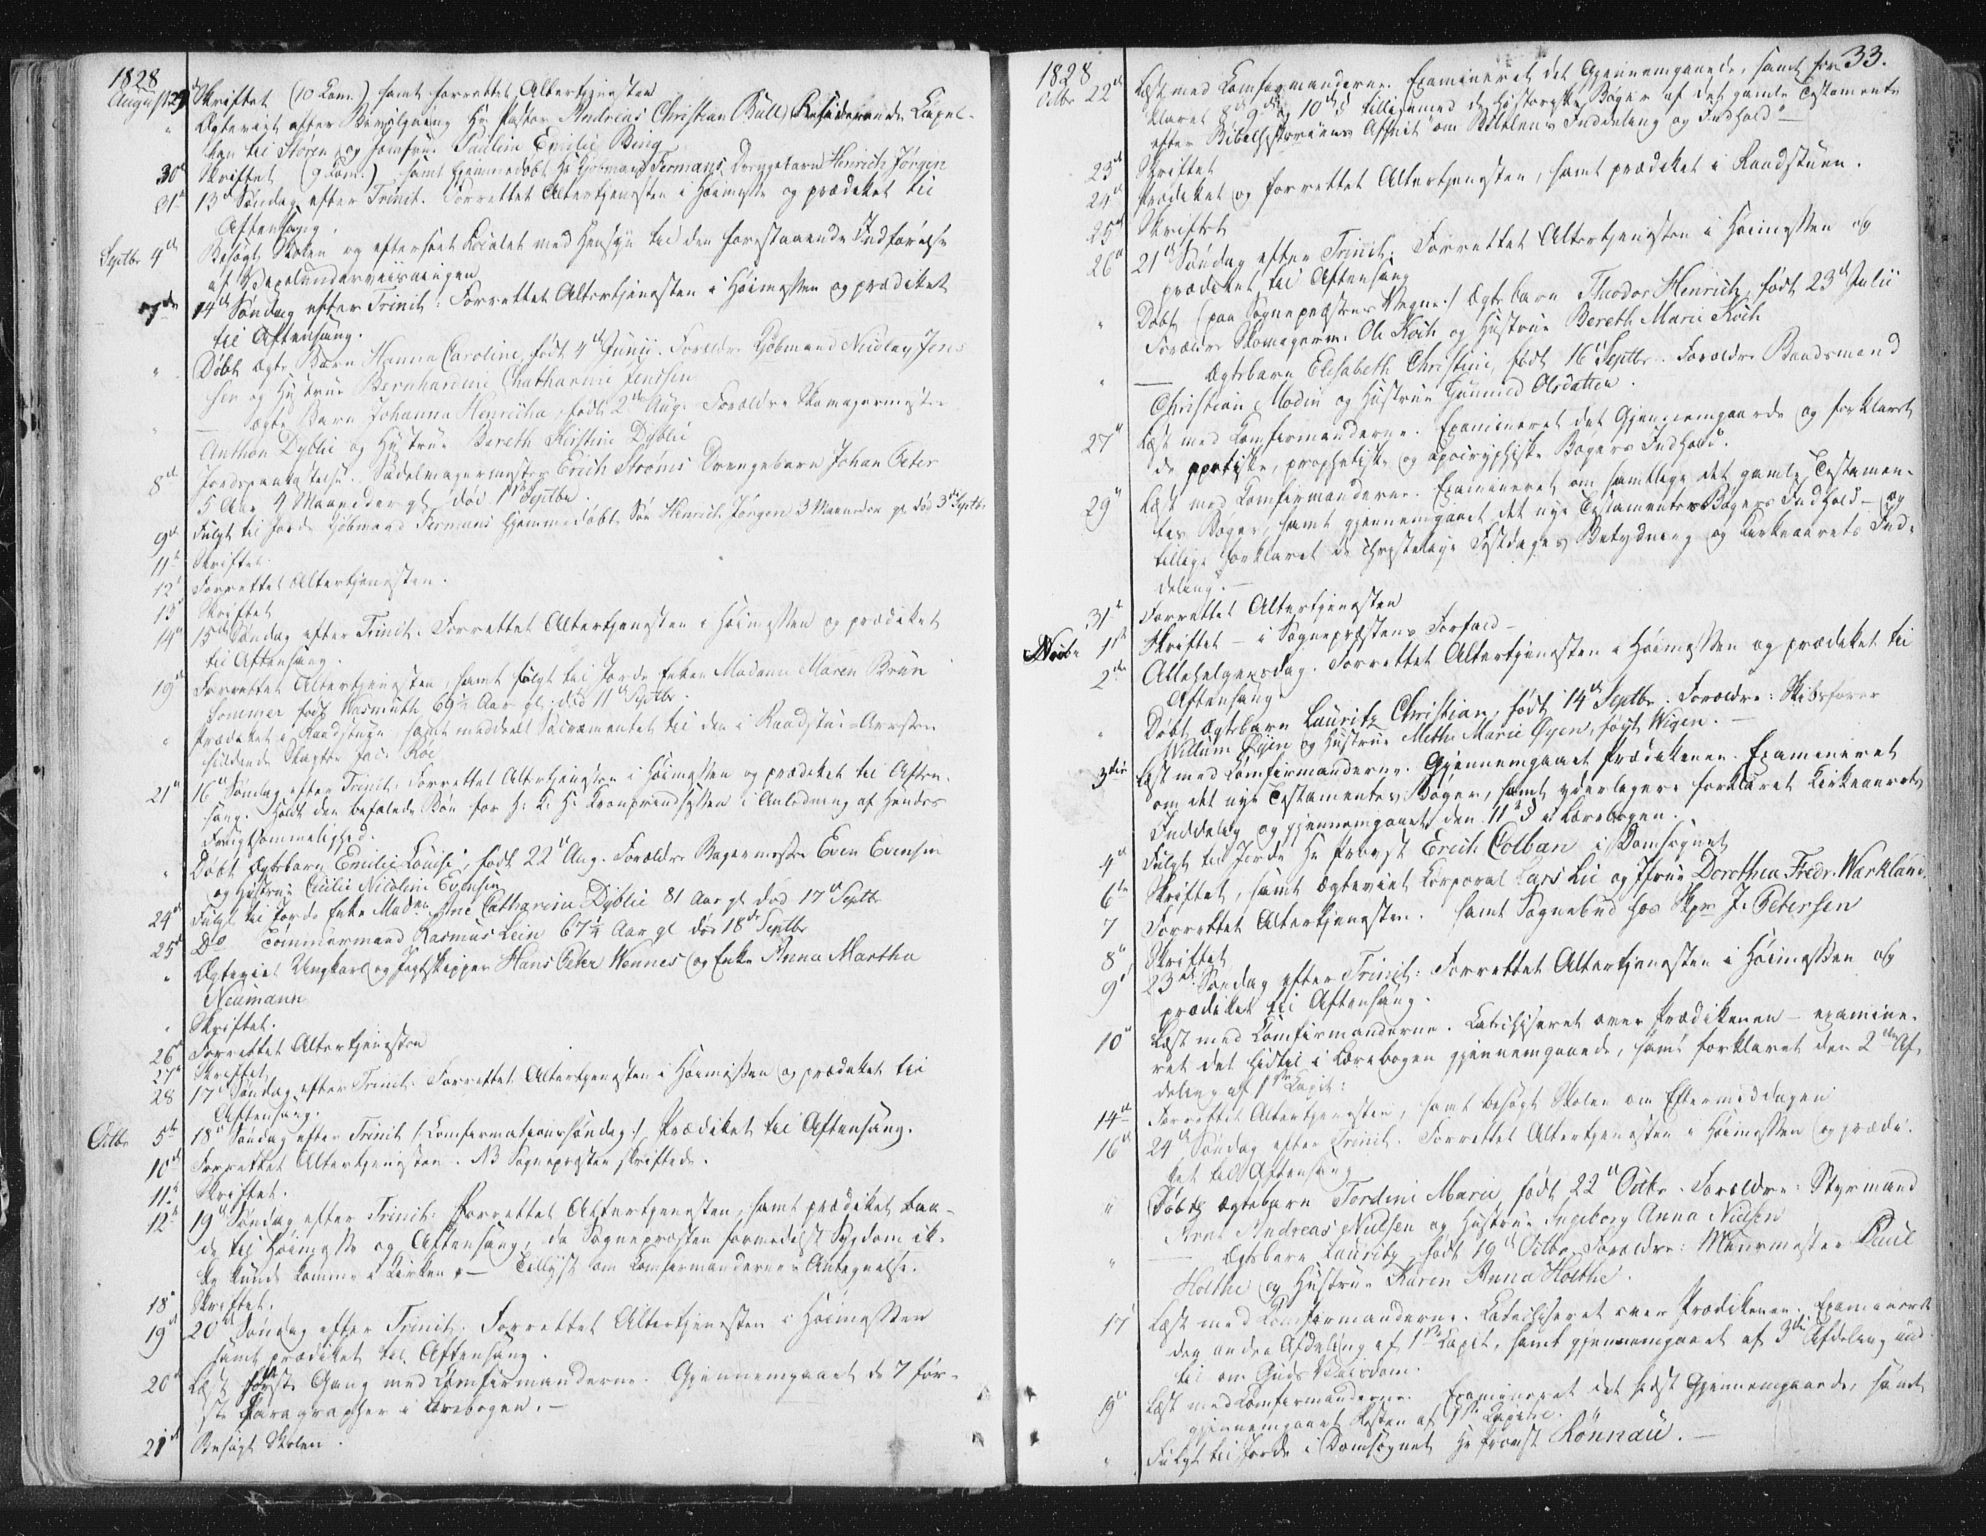 1828
August 29 Skriftet (10 Com.) samt forrettet Altertjenesten
" Ægteviet efter Bevilgning Hr Pastor Andreas Christian Bull, Residerende Capel-
lan til Støren og Jomfrue Pauline Emilie Bing
30d Skriftet (9 Com.) samt hjemmedøbt Hr Kjøbmand Fermans Drengebarn Henrich Jørgen
31te 13de Søndag efter Trinit. Forrettet Altertjenesten i Høimessen og prædiket til
Aftensang.
Septbr 4de Besøgt Skolen og efterseet Localet med Hensyn til den forestaaende Indførelse
af Vexelunderviisningen
7de 14de Søndag efter Trinit: Forrettet Altertjenesten i Høimessen og prædiket
til Aftensang.
" Døbt ægte Barn Hanna Caroline, født 4de Junii. Forældre Kjøbmand Nicolay Jens
sen og Hustrue Bernhardine Chatharine Jenssen
" — ægte Barn Johanna Henricha, født 2den Aug. Forældre Skomagermester
Anthon Dyblie og Hustrue Bereth Kirstine Dyblie
8de Jordspaakastelse. Sadelmagermester Erich Strøms Drengebarn Johan Peter
5 Aar 4 Maaneder gl. død 1ste Septbr.
9de Fulgt til Jorde Kjøbmand Fermans hjemmedøbte Søn Henrich Jørgen 3 Maaneder gl død 3de Septbr
11te Skriftet.
12te Forrettet Altertjenesten.
13de Skriftet
14de 15de Søndag efter Trinit. Forrettet Altertjenesten i Høimessen og prædiket
til Aftensang.
19de Forrettet Altertjenesten, samt fulgt til Jorde Enken Madame Maren Brun
Sommer født Wasmuth 69½ Aar gl. død 11te Septbr.
" Prædiket i Raadstuen, samt meddeelt Sacramentet til den i Raadstue-Arresten
siddende Slagter Jac. Roe
21de 16de Søndag efter Trinit. Forrettet Altertjenesten i Høimessen og prædiket til Aften-
sang. Holdt den befalede Bøn for H: K: H: Kronprindsessen i Anledning af Hendes
Frugtsommelighed.
" Døbt Ægtebarn Emilie Louise, født 22de Aug. Forældre Bagermester Even Evensen
og Hustrue Cecilie Nicoline Evensen
24de Fulgt til Jorde Enke Madme Ane Catharine Dyblie 81 Aar gl død 17de Septbr
25de Do Tømmermand Rasmus Lein 67½ Aar gl død 18de Septbr
" Ægteviet Ungkarl og Jagtskipper Hans Peter Wennes og Enke Anna Martha
Neumann
" Skriftet.
26de Forrettet Altertjenesten
27de Skriftet
28 17de Søndag efter Trinit. Forrettet Altertjenesten i Høimessen og prædiket til
Aftensang.
Octbr 5te 18de Søndag efter Trinit /:Confirmationssøndag:/ Prædiket til Aftensang.
10de Forrettet Altertjenesten. NB Sognepræsten skriftede.
11te Skriftet.
12te 19de Søndag efter Trinit: Forrettet Altertjenesten, samt prædiket baa-
de til Høimesse og Aftensang, da Sognepræsten formedelst Sygdom ik-
ke kunde komme i Kirken — Tillyst om Confirmandernes Antegnelse.
18de Skriftet.
19de 20de Søndag efter Trinit. Forrettet Altertjenesten i Høimessen
samt prædiket til Aftensang.
20de Læst første Gang med Confirmanderne. Gjennemgaaet de 7 før-
ste Paragrapher i Lærebogen. —
21de Besøgt Skolen.
33.
1828
Octbr 22de Læst med Confirmanderne. Examineret det Gjennemgaaede, samt for-
klaret 8de 9de og 10de § tilligemed de historiske Bøger af det gamle Testamente
efter Bibelhistoriens Afsnit "om Bibelens Inddeling og Indhold" —
23de Skriftet
24de Prædiket og forrettet Altertjenesten, samt prædiket i Raadstuen.
25de Skriftet
26de 21de Søndag efter Trinit. Forrettet Altertjenesten i Høimessen og
prædiket til Aftensang
" Døbt (paa Sognepræstens Vegne) Ægtebarn Theodor Henrich, født 23de Julii
Forældre Skomagerm. Ole Koch og Hustrue Bereth Marie Koch
" — Ægtebarn Elisabeth Christine, født 16de Septbr. Forældre Baadsmand
Christian Modin og Hustrue Gunnild Olsdatter.
27de Læst med Confirmanderne. Examineret det Gjennemgaaede og forklaret
de poetiske, prophetiske og apocryphiske Bøgers Indhold.
29de Læst med Confirmanderne. Examineret om samtlige det gamle Testamen-
tes Bøger, samt gjennemgaaet det nye Testamentes Bøgers Indhold — og
tillige forklaret de christelige Festdages Betydning og Kirkeaarets Ind-
deling. —
31te Forrettet Altertjenesten
Novbr 1ste Skriftet — i Sognepræstens Forfald —
2den Allehelgensdag. Forrettet Altertjenesten i Høimessen og prædiket til
Aftensang
" Døbt Ægtebarn Lauritz Christian, født 14de Septbr. Forældre: Skibsfører
Willum Øyen og Hustrue Methe Marie Øyen, født Wigen. —
3die Læst med Confirmanderne. Gjennemgaaet Prædikenen. Examineret
om det nye Testamentes Bøger, samt yderligere forklaret Kirkeaarets
Inddeling og gjennemgaaet den 11te § i Lærebogen.
4de Fulgt til Jorde Hr Provst Erich Colban i Domsognet
6te Skriftet, samt ægteviet Corporal Lars Lie og Jfrue Dorothea Fredr. Warkland.
7 Forrettet Altertjenesten. Samt Sognebud hos Skpr J. Petersen
8de Skriftet
9de 23de Søndag efter Trinit: Forrettet Altertjenesten i Høimessen og
prædiket til Aftensang.
10de Læst med Confirmanderne. Catechiseret over Prædikenen — examine-
ret det hidtil i Lærebogen gjennemgaaede, samt forklaret den 2den Af-
deling af 1ste Capit:
14de Forrettet Altertjenesten, samt besøgt Skolen om Eftermiddagen
16de 24de Søndag efter Trinit. Forrettet Altertjenesten i Høimessen og prædi-
ket til Aftensang
" Døbt Ægtebarn Ferdine Marie, født 22de Octbr. Forældre: Styrmand
Arnt Andreas Nielsen og Hustrue Ingeborg Anna Nielsen
" — Ægtebarn Lauritz, født 19de Octbr. Forældre: Muurmester Paul
Holthe og Hustrue Karen Anna Holthe.
17 Læst med Confirmanderne. Catechiseret over Prædikenen. Examineret
den anden Afdeling af 1ste Capit, samt gjennemgaaet af 3die Afdeling ind-
til om Guds Viisdom.
19de Læst med Confirmanderne. Examineret det sidst Gjennemgaaede, samt
gjennemgaaet Resten af 1ste Capitel.
" Fulgt til Jorde i Domsognet Hr Provst Rönnau. —